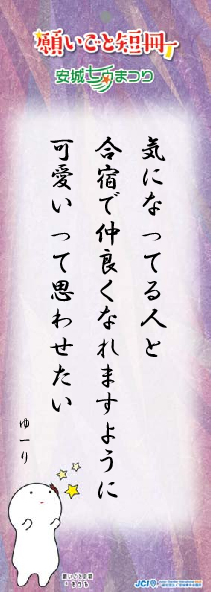 願いごと短冊
安城七夕まつり
気になってる人と
合宿で仲良くなれますように
可愛いって思わせたい
ゆーり
JCI